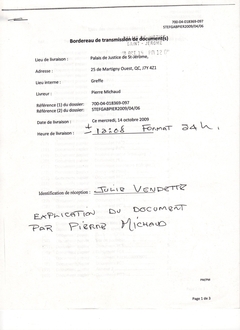 700-04-018369-097
STEFGABPIER2009/04/06
Bordereau de transmission de document(s)
Lieu de livraison : Palais de Justice de St-Jérôme,
Adresse : 25 de Martigny Ouest, QC, J7Y 4Z1
Lieu interne : Greffe
Livreur : Pierre Michaud
Référence (1) du dossier: 700-04-018369-097
Référence (2) du dossier: STEFGABPIER2009/04/06
Date de livraison : Ce mercredi, 14 octobre 2009
Heure de livraison : ± 12:08 FORMAT 24h.
Identification de réception : JULIE VENDETTE
EXPLICATION DU DOCUMENT
PAR PIERRE MICHAUD
Page 1 de 3